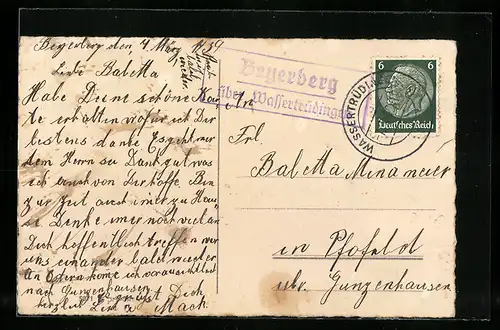 Beyerberg den 4 März 1939
Liebe Babetta
Habe Deine schöne Kar
te erhalten wofür ich Dir
bestens danke Es geht mir
dem Herrn sei Dank gut was
ich auch von Dir hoffe Bin
zur Zeit auch immer zu Hau
se Denke immer noch viel an
Dich hoffentlich treffen wir
uns einander bald wieder
An Ostern kome ich voraussichtlich
nach Gunzenhausen
Es grüßt Dich
herzlich Mach
Beyerberg
über Wassertrüdingen
WASSERTRÜDINGEN
6 6
Deutsches Reich
An
Frl.
Babetta Minameier
in Pfofeld
über Gunzenhausen